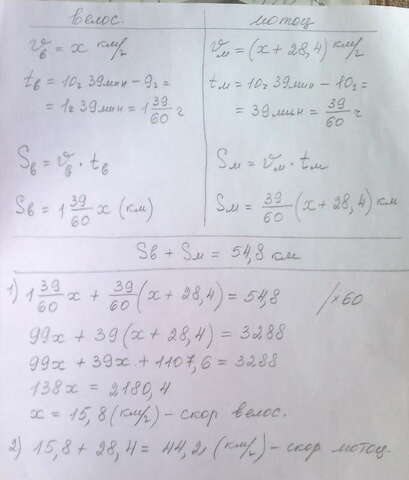 велос. мотоц.
vв = x км/ч vм = (x + 28,4) км/ч
tв = 10ч 39мин – 9ч = tм = 10ч 39мин – 10ч =
= 1ч 39мин = 1 39/60 ч = 39мин = 39/60 ч
Sв = vв · tв Sм = vм · tм
Sв = 1 39/60 x (км) Sм = 39/60 (x + 28,4) км
Sв + Sм = 54,8 км
1) 1 39/60 x + 39/60 (x + 28,4) = 54,8 /×60
99x + 39 (x + 28,4) = 3288
99x + 39x + 1107,6 = 3288
138x = 2180,4
x = 15,8 (км/ч) – скор велос.
2) 15,8 + 28,4 = 44,2 (км/ч) – скор мотоц.